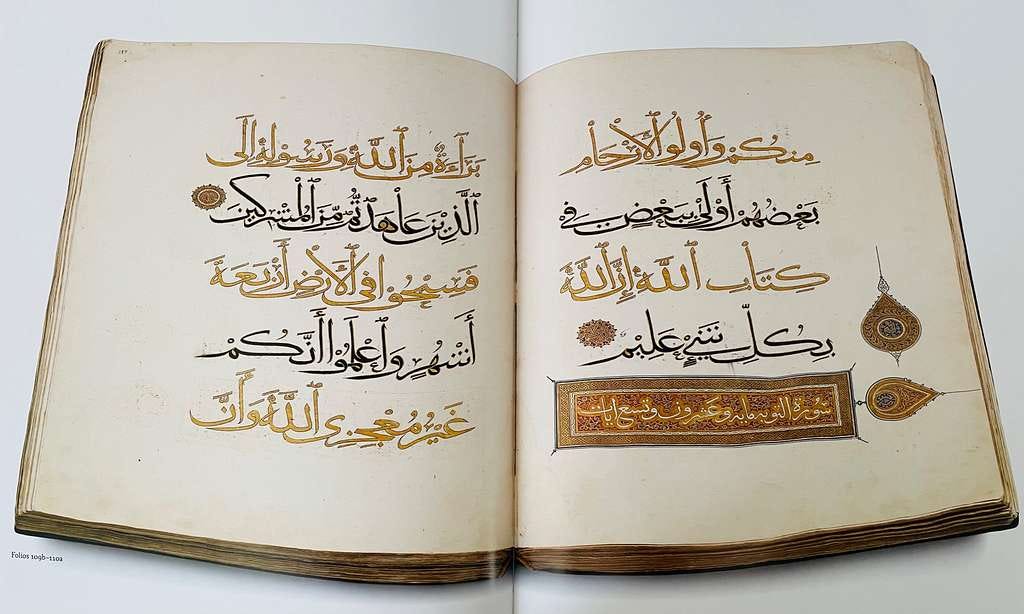 منكُمْ وَأُولُوا ٱلْأَرْحَامِ
بَعْضُهُمْ أَوْلَىٰ بِبَعْضٍ فِي
كِتَابِ ٱللَّهِ إِنَّ ٱللَّهَ
بِكُلِّ شَيْءٍ عَلِيمٌ
سورة التوبة مائة وعشرون وتسع ايات
بَرَآءَةٌ مِنَ ٱللَّهِ وَرَسُولِهِ إِلَى
ٱلَّذِينَ عَاهَدْتُمْ مِنَ ٱلْمُشْرِكِينَ
فَسِيحُوا فِي ٱلْأَرْضِ أَرْبَعَةَ
أَشْهُرٍ وَٱعْلَمُوا أَنَّكُمْ
غَيْرُ مُعْجِزِي ٱللَّهِ وَأَنَّ
Folios 109b–110a